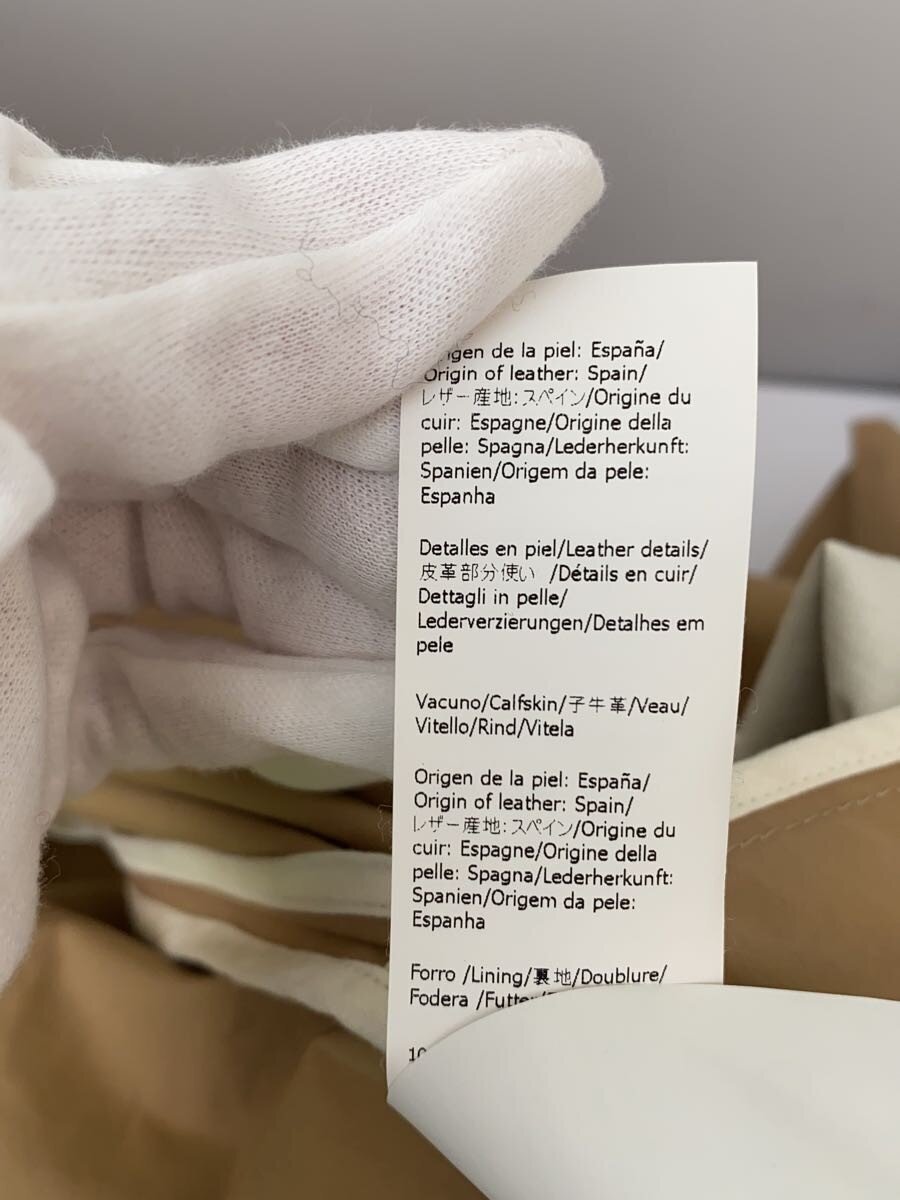 de la piel: España/
Origin of leather: Spain/
レザー産地:スペイン/Origine du
cuir: Espagne/Origine della
pelle: Spagna/Lederherkunft:
Spanien/Origem da pele:
Espanha
Detalles en piel/Leather details/
皮革部分使い /Détails en cuir/
Dettagli in pelle/
Lederverzierungen/Detalhes em
pele
Vacuno/Calfskin/子牛革/Veau/
Vitello/Rind/Vitela
Origen de la piel: España/
Origin of leather: Spain/
レザー産地:スペイン/Origine du
cuir: Espagne/Origine della
pelle: Spagna/Lederherkunft:
Spanien/Origem da pele:
Espanha
Forro /Lining/裏地/Doublure/
Fodera